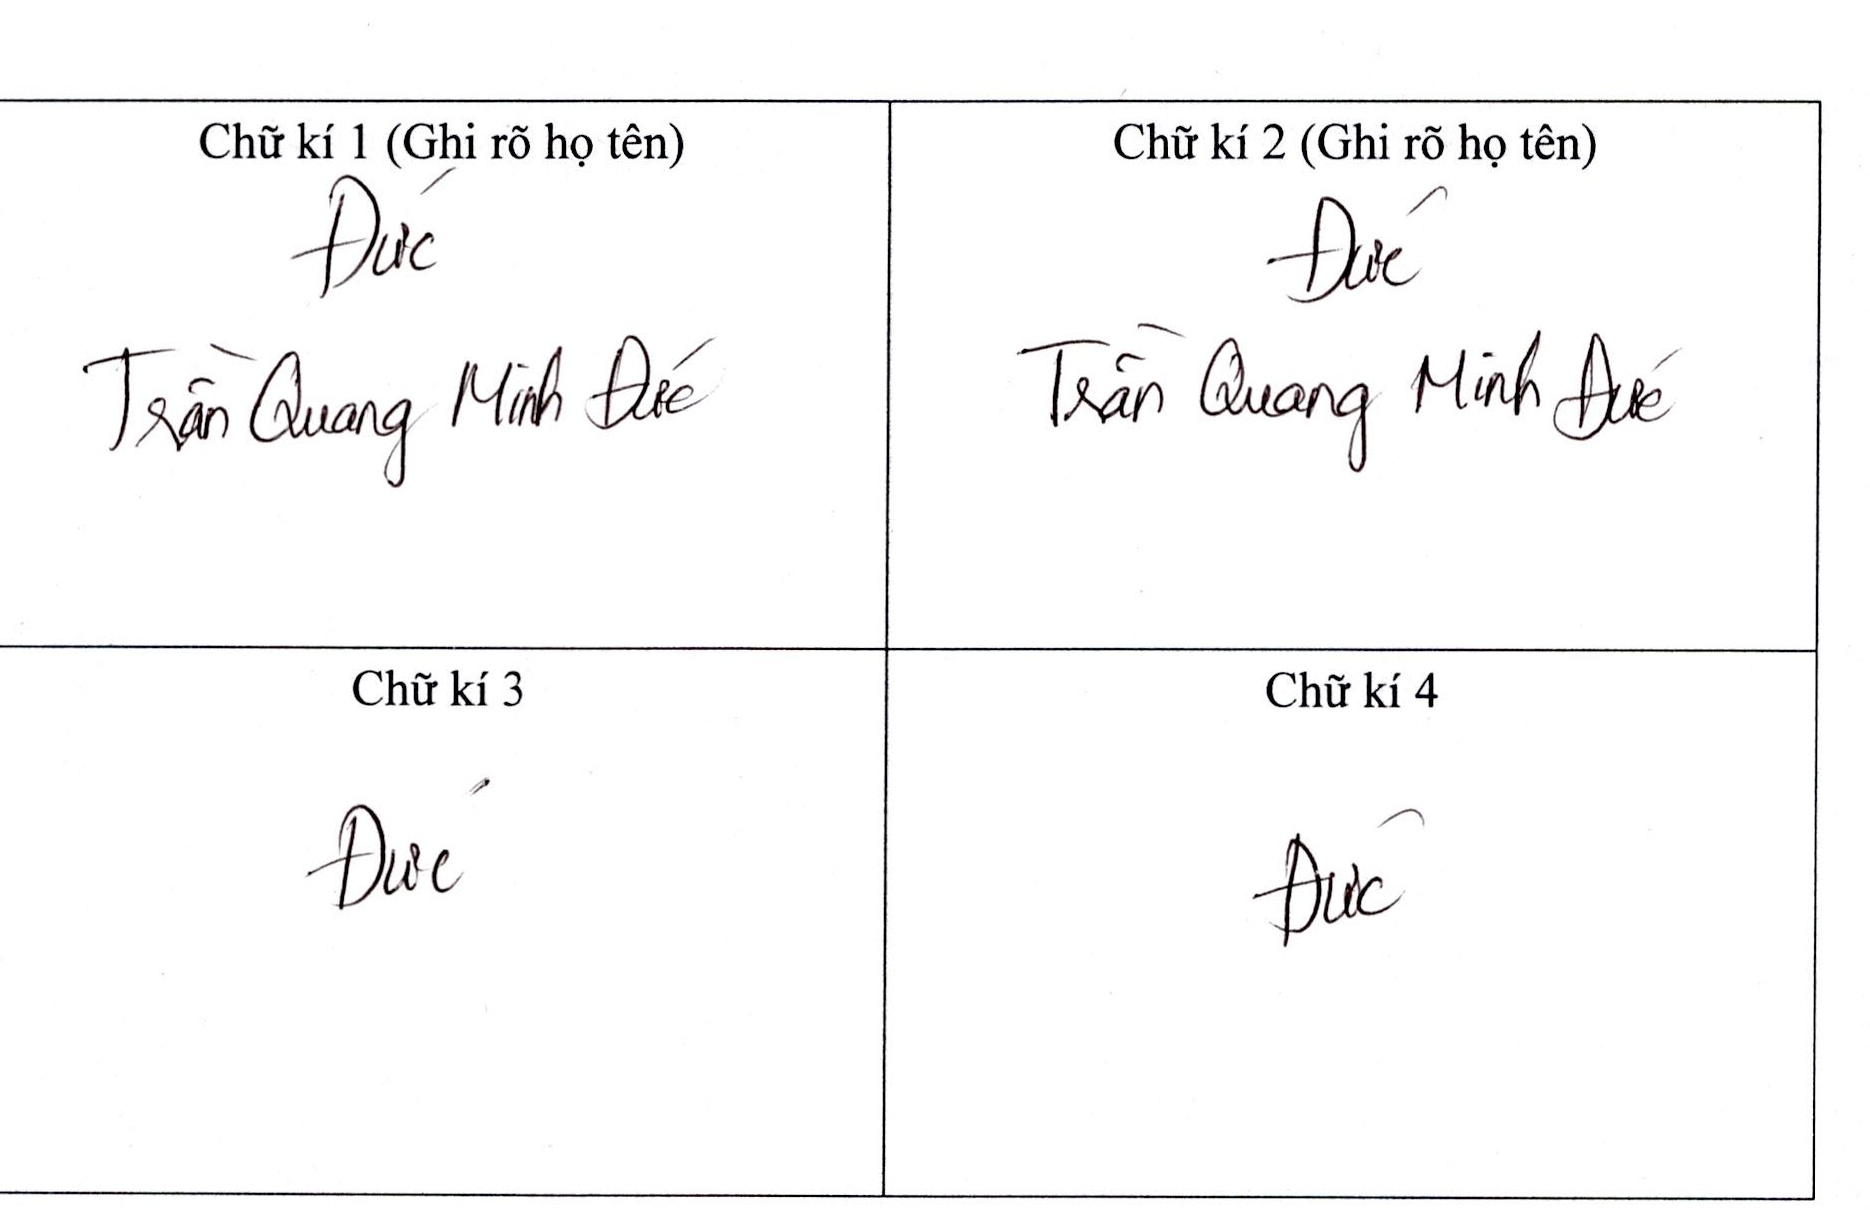 Chữ kí 1 (Ghi rõ họ tên)
Đức
Trần Quang Minh Đức
Chữ kí 2 (Ghi rõ họ tên)
Đức
Trần Quang Minh Đức
Chữ kí 3
Đức
Chữ kí 4
Đức